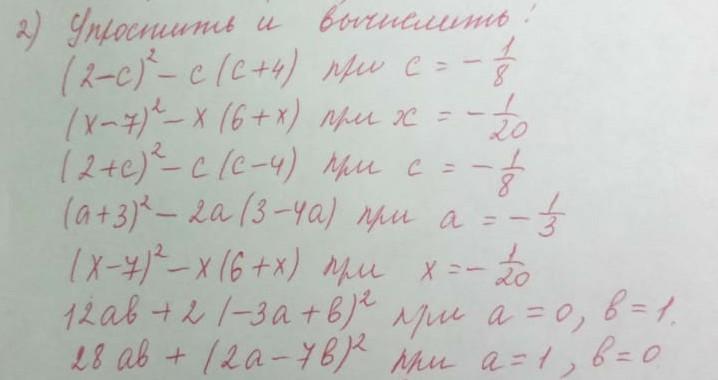 2) Упростить и вычислить:
(2-c)² - c(c+4) при c = -1/8
(x-7)² - x(6+x) при x = -1/20
(2+c)² - c(c-4) при c = -1/8
(a+3)² - 2a(3-4a) при a = -1/3
(x-7)² - x(6+x) при x = -1/20
12ab + 2(-3a+b)² при a = 0, b = 1.
28ab + (2a-7b)² при a = 1, b = 0